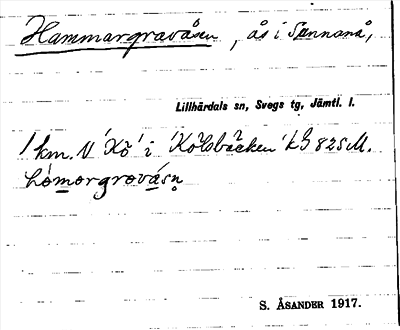 Hammargravåsen, ås i Sännanå,
Lillhärdals sn, Svegs tg, Jämtl. l.
1 km. V "Kö" i "Kölsbäcken" LG 825 M.
S. ÅSANDER 1917.